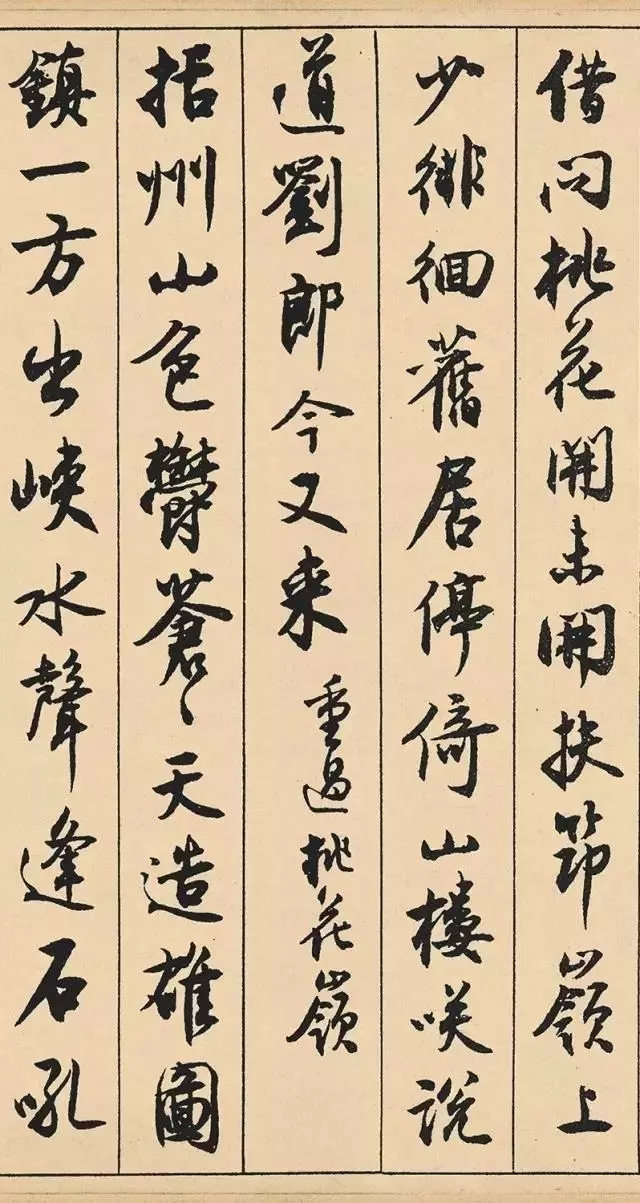 借问桃花開未開扶筇嶺上
少徘徊舊居停倚山樓咲説
道劉郎今又来 重過桃花嶺
括州山色鬱蒼〻天造雄圖
鎮一方出峽水聲逢石吼